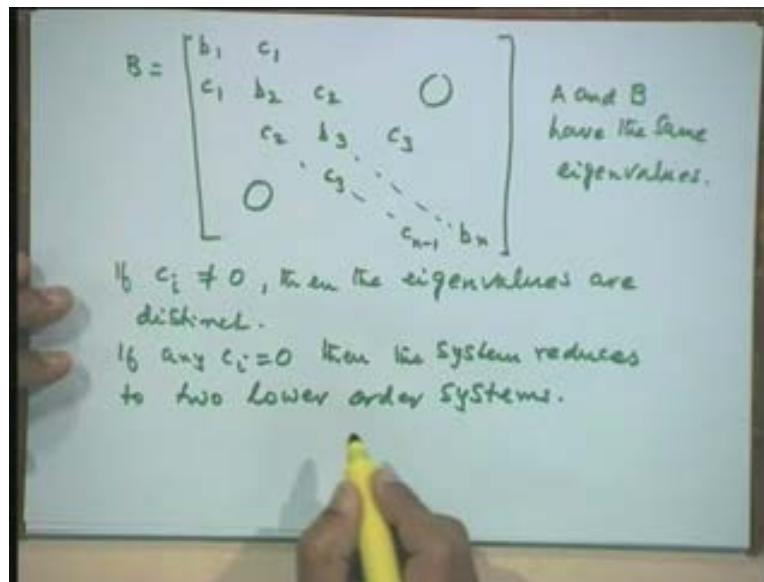 B = [ b₁ c₁
c₁ b₂ c₂ O
c₂ b₃ c₃
O c₃
cₙ₋₁ bₙ ]
A and B
have the same
eigenvalues.
If cᵢ ≠ 0, then the eigenvalues are
distinct.
If any cᵢ = 0 then the system reduces
to two lower order systems.